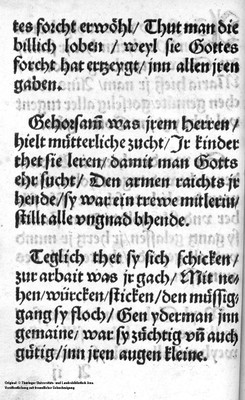 tes forcht erwöhl / Thut man die
billich loben / weyl sie Gottes
forcht hat ertzeygt / jnn allen jren
gaben.
Gehorsam̄ was jrem herren /
hielt můtterliche zucht / Ir kinder
thet sie leren / damit man Gotts
ehr sucht / Den armen raichts jr
hende / sy war ein trëwe mitlerin /
stillt alle vngnad bhende.
Teglich thet sy sich schicken /
zur arbait was jr gach / Mit ne-
hen / würcken / sticken / den müssig-
gang sy floch / Gen yderman jnn
gemaine / war sy züchtig vñ auch
gütig / jnn jren augen kleine.
Original © Thüringer Universitäts- und Landesbibliothek Jena
Veröffentlichung mit freundlicher Genehmigung